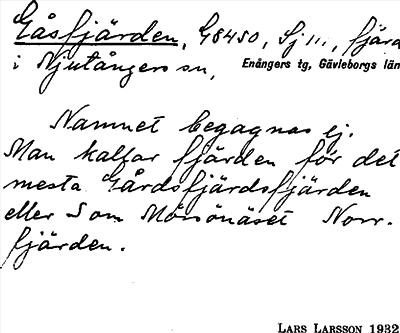 Gåsfjärden, G8450, Sj III, fjärd
i Njutångers sn, Enångers tg, Gävleborgs län
Namnet begagnas ej.
Man kallar fjärden för det
mesta Gårdsfjärdsfjärden
eller som Mörsönäset Norr-
fjärden.
LARS LARSSON 1932